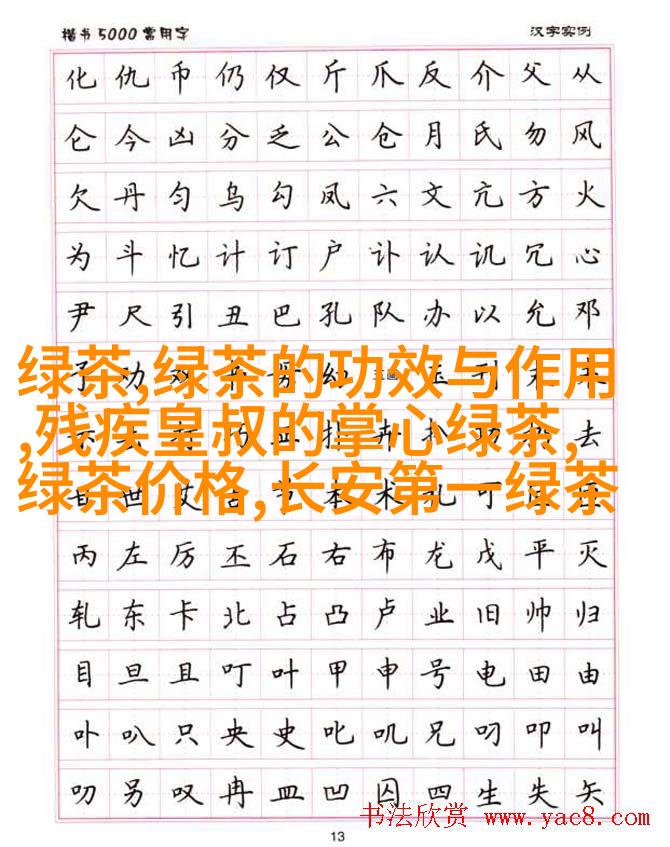 楷书5000常用字 汉字实例
化仇币仍仅斤爪反介父从
仑今凶分乏公仓月氏勿风
欠丹匀乌勾凤六文亢方火
为斗忆计订户讣认讥冗心
尹尺引丑巴孔队办以允邓
绿茶,绿茶的功效与作用
,残疾皇叔的掌心绿茶,
绿茶价格,长安第一绿茶
丙左厉丕石右布龙戊平灭
轧东卡北占凸卢业旧帅归
目旦且叮叶甲申号电田由
卟叭只央史叱叽兄叼叩叫
叨另叹冉皿凹囚四生失矢
书法欣赏 www.yac8.com
13